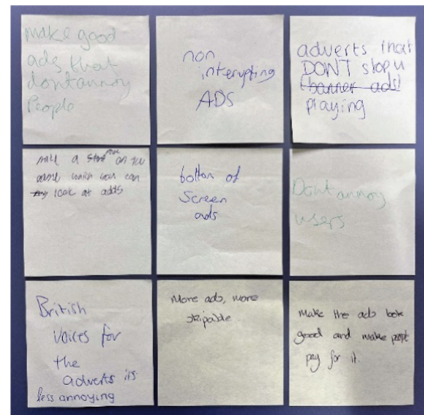 make good
ads that
dont annoy
People
non
interupting
ADS
adverts that
DON'T stop u
(banner ads)
playing
make a store on you
were you can
look at adds
bottom of
Screen
ads
Dont annoy
users
British
voices for
the
adverts is
less annoying
More ads, more
skipable
Make the ads look
good and make peopl
pay for it.